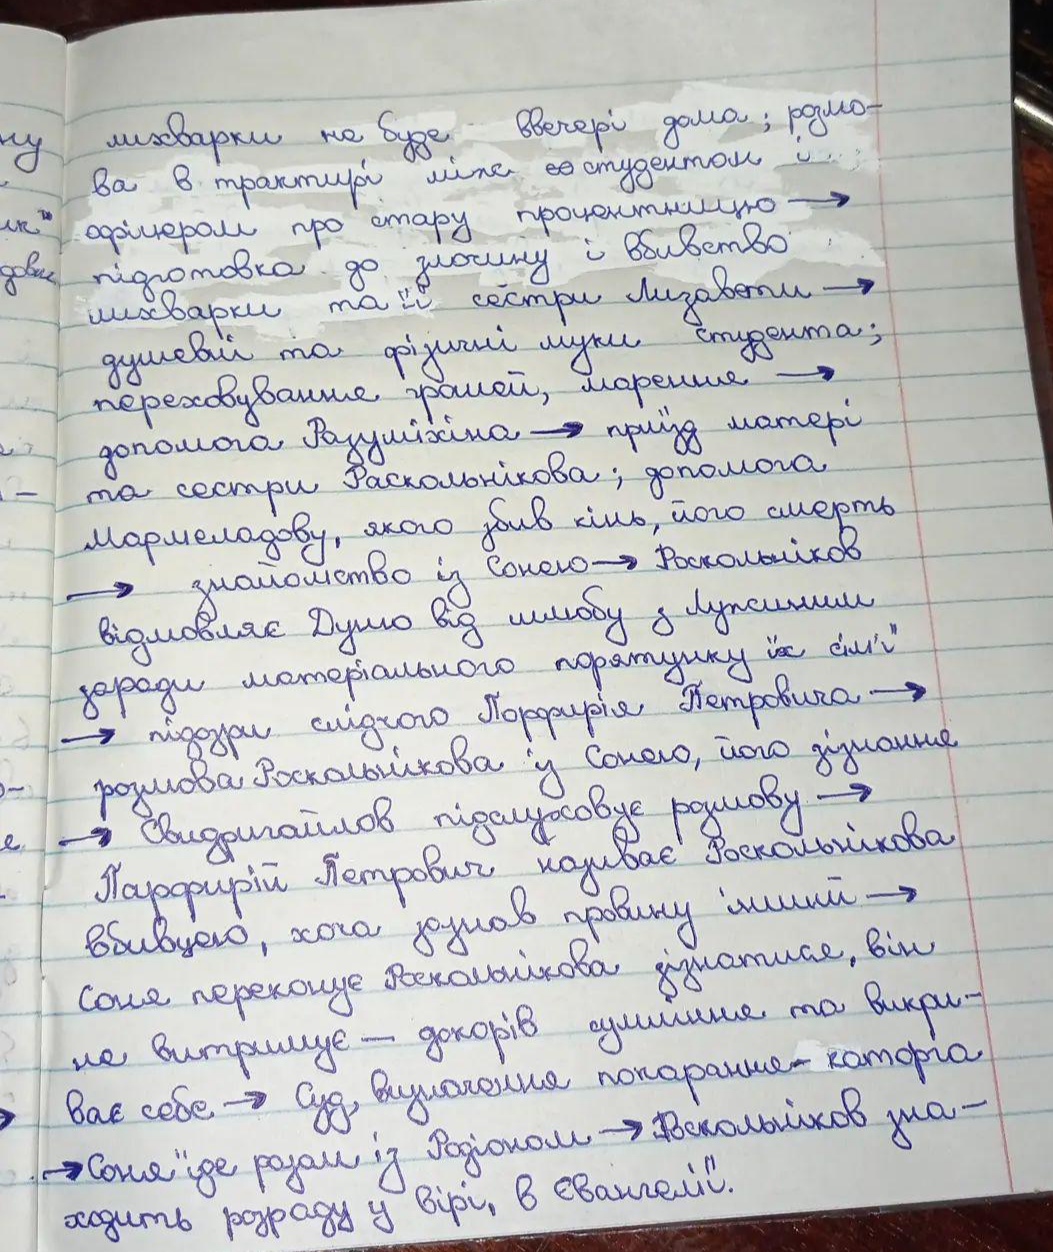 лихварки не буде ввечері дома; розмо-
ва в трактирі між студентом і
офіцером про стару процентницю →
підготовка до злочину і вбивство
лихварки та її сестри Лизавети →
душевні та фізичні муки студента;
переховування грошей, марення →
допомога Разуміхіна → приїзд матері
та сестри Раскольнікова; допомога
Мармеладову, якого збив кінь, його смерть
→ знайомство із Сонею → Роскольніков
відмовляє Дуню від шлюбу з Лужиним
заради матеріального порятунку їх сім'ї
→ підозри слідчого Порфирія Петровича →
розмова Роскольнікова із Сонею, його зізнання
→ Свидригайлов підслуховує розмову →
Парфирій Петрович називає Роскольнікова
вбивцею, хоча зазнав провину інший →
Соня переконує Роскольнікова зізнатися, він
не витримує – докорів сумління та викри-
ває себе → Суд, визначення покарання – каторга
→ Соня їде разом із Родіоном → Роскольніков зна-
ходить розраду у вірі, в Євангелії.
ну
ик"